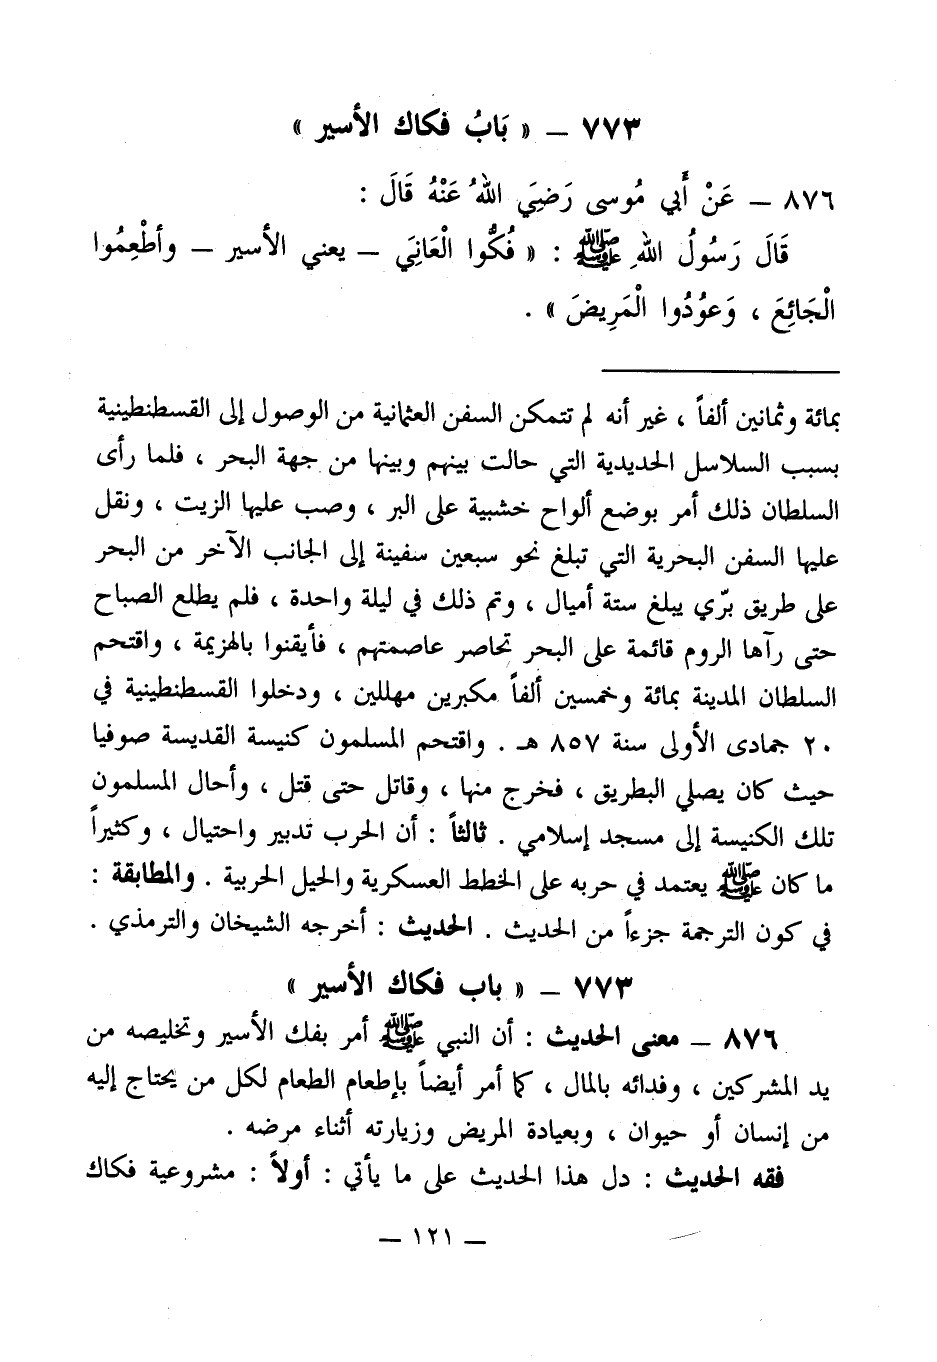 ٧٧٣ – « بَابُ فكاك الأسير »
٨٧٦ – عَنْ أَبي مُوسى رَضِيَ اللهُ عَنْهُ قَالَ :
قَالَ رَسُولُ اللهِ ﷺ : « فُكُّوا الْعَانِيَ – يعني الأسير – وأطْعِمُوا
الْجَائِعَ ، وَعوُدُوا الْمَرِيضَ » .
بمائة وثمانين ألفاً ، غير أنه لم تتمكن السفن العثمانية من الوصول إلى القسطنطينية
بسبب السلاسل الحديدية التي حالت بينهم وبينها من جهة البحر ، فلما رأى
السلطان ذلك أمر بوضع ألواح خشبية على البر ، وصب عليها الزيت ، ونقل
عليها السفن البحرية التي تبلغ نحو سبعين سفينة إلى الجانب الآخر من البحر
على طريق برّي يبلغ ستة أميال ، وتم ذلك في ليلة واحدة ، فلم يطلع الصباح
حتى رآها الروم قائمة على البحر تحاصر عاصمتهم ، فأيقنوا بالهزيمة ، واقتحم
السلطان المدينة بمائة وخمسين ألفاً مكبرين مهللين ، ودخلوا القسطنطينية في
٢٠ جمادى الأولى سنة ٨٥٧ هـ . واقتحم المسلمون كنيسة القديسة صوفيا
حيث كان يصلي البطريق ، فخرج منها ، وقاتل حتى قتل ، وأحال المسلمون
تلك الكنيسة إلى مسجد إسلامي . ثالثاً : أن الحرب تدبير واحتيال ، وكثيراً
ما كان ﷺ يعتمد في حربه على الخطط العسكرية والحيل الحربية . والمطابقة :
في كون الترجمة جزءاً من الحديث . الحديث : أخرجه الشيخان والترمذي .
٧٧٣ – « باب فكاك الأسير »
٨٧٦ – معنى الحديث : أن النبي ﷺ أمر بفك الأسير وتخليصه من
يد المشركين ، وفدائه بالمال ، كما أمر أيضاً بإطعام الطعام لكل من يحتاج إليه
من إنسان أو حيوان ، وبعيادة المريض وزيارته أثناء مرضه .
فقه الحديث : دل هذا الحديث على ما يأتي : أولاً : مشروعية فكاك
– ١٢١ –